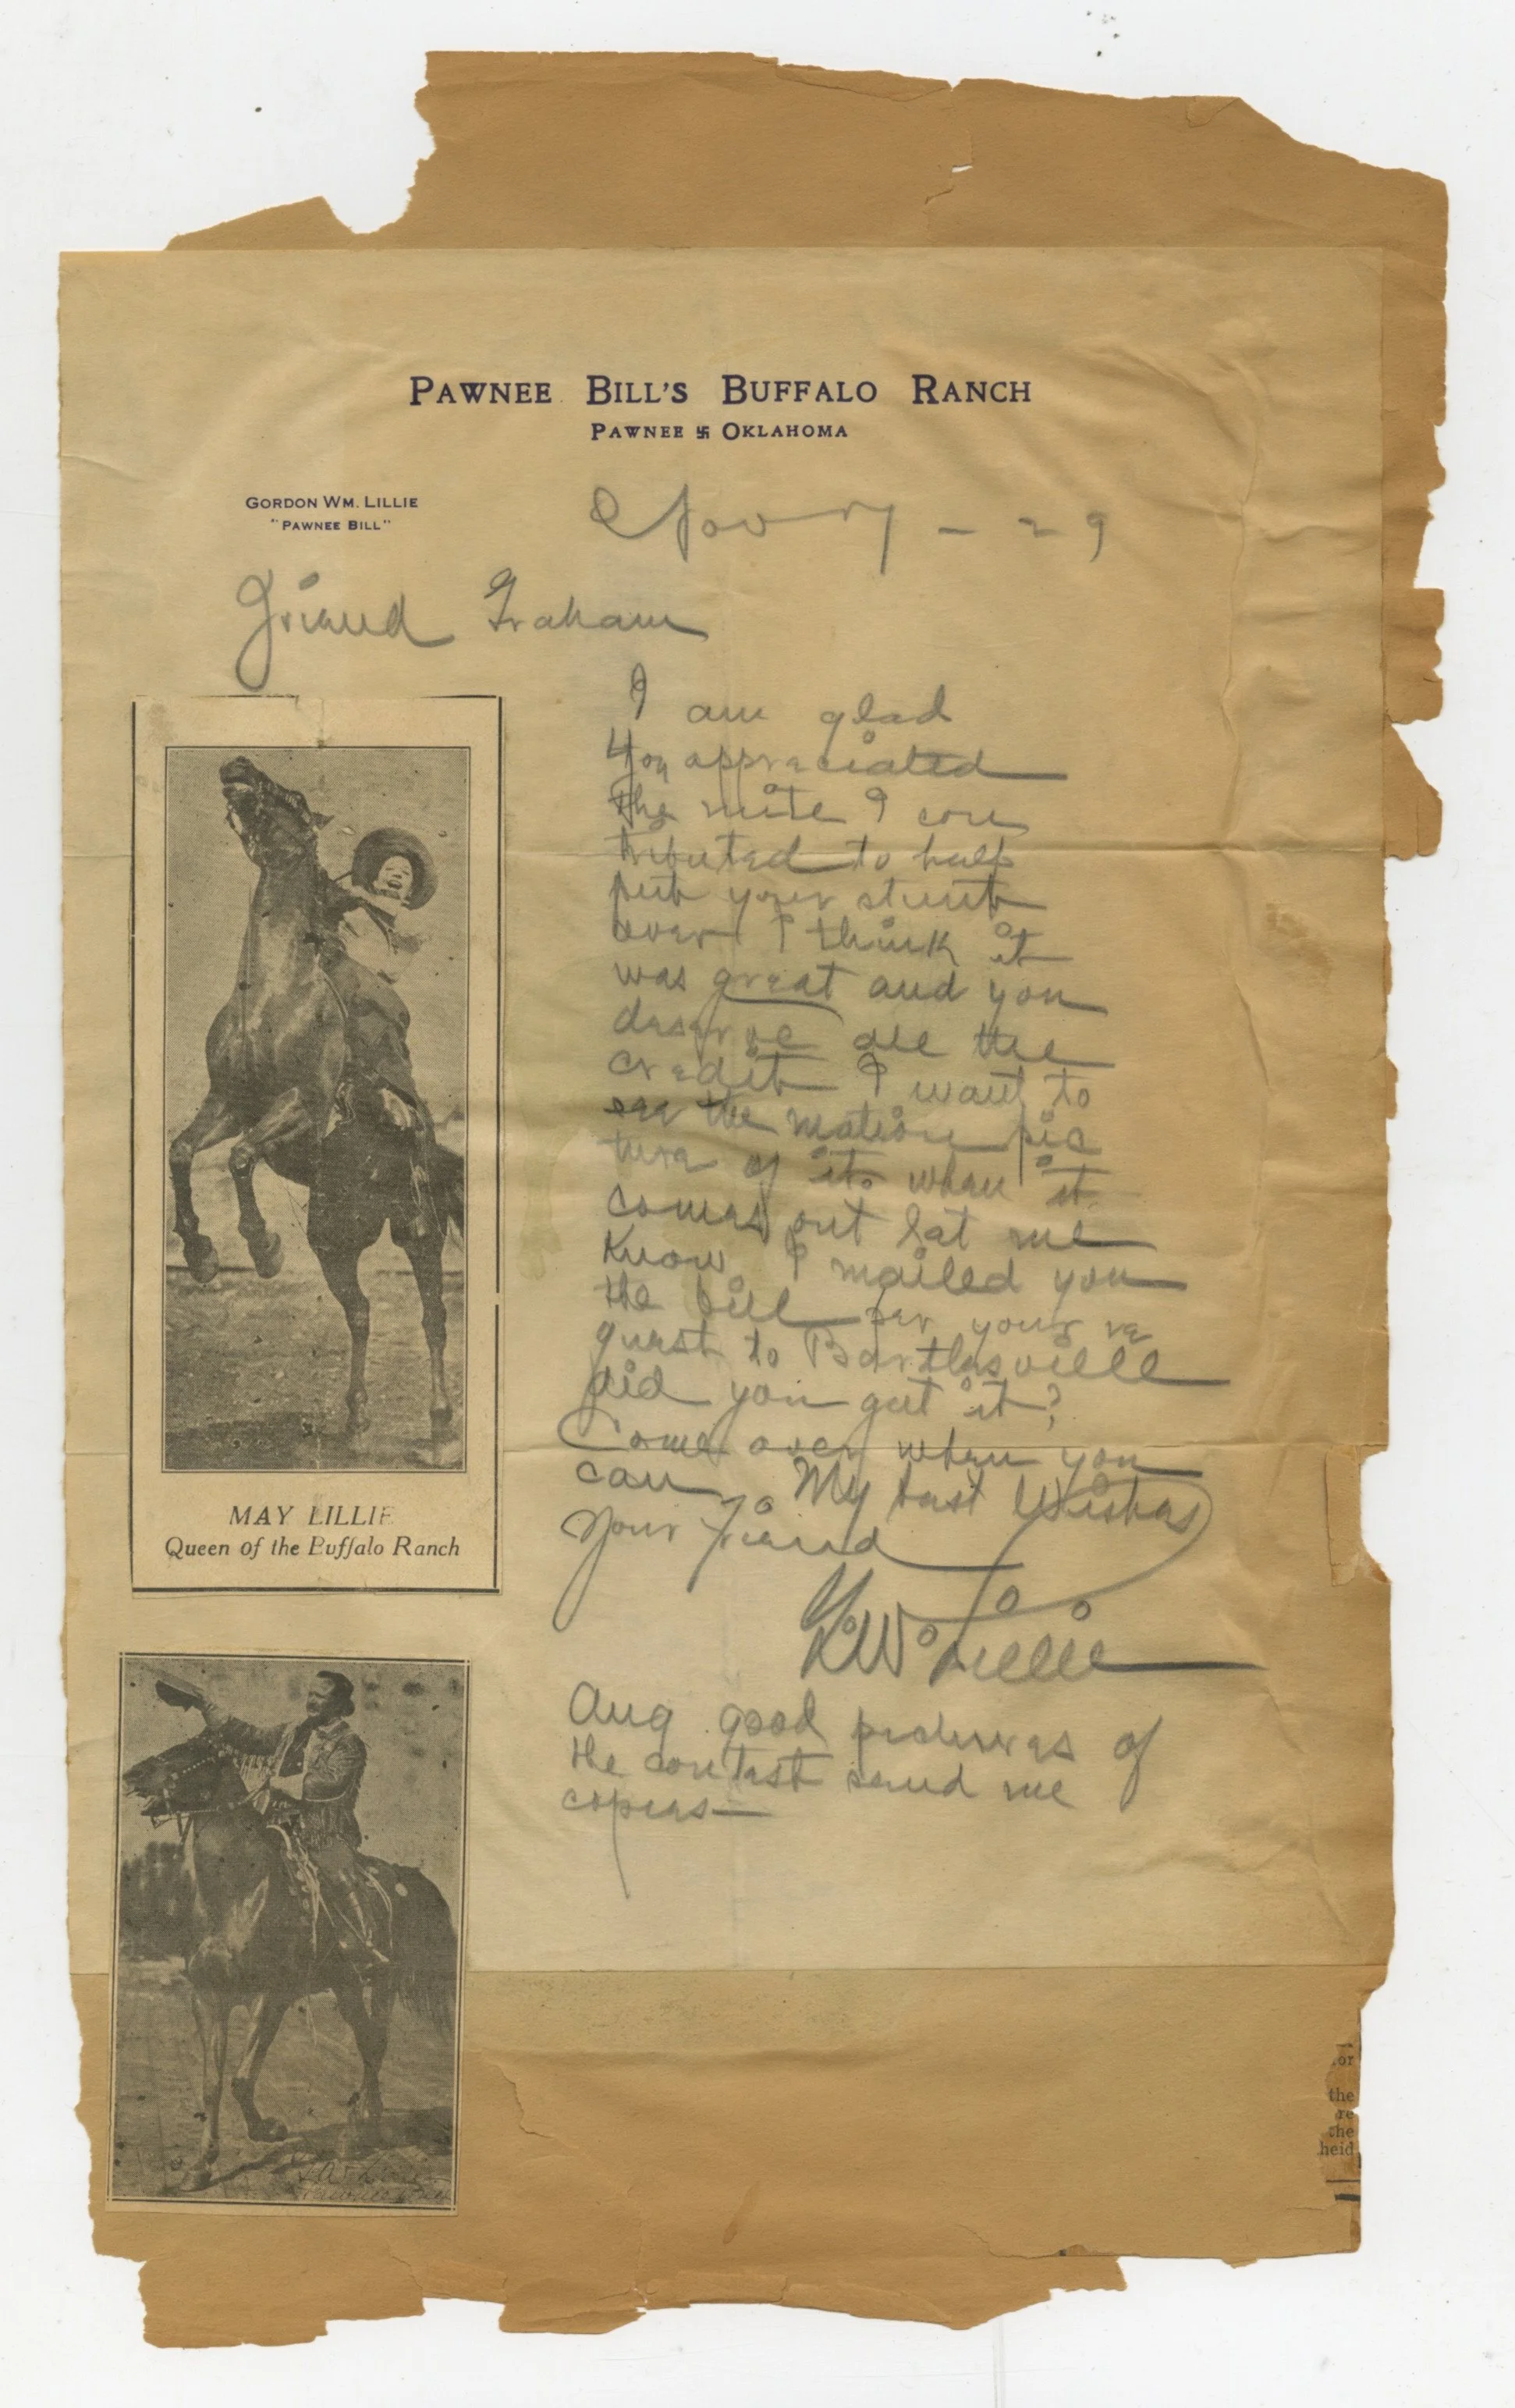 PAWNEE BILL'S BUFFALO RANCH
PAWNEE 卐 OKLAHOMA
GORDON WM. LILLIE
"PAWNEE BILL"
Nov 7 - 29
Friend Graham
I am glad
you appreciated
the mite I con
tributed to help
put your stunt
over I think it
was great and you
deserve all the
credit I want to
see the motion pic
ture of it. when it
comes out let me
know I mailed you
the bill per your re
quest to Bartlesville
did you get it?
Come over when you
can My best Wishes
Your Friend
G.W. Lillie
Any good pictures of
the contest send me
copies—
MAY LILLIE
Queen of the Buffalo Ranch
or
the
re
the
heid